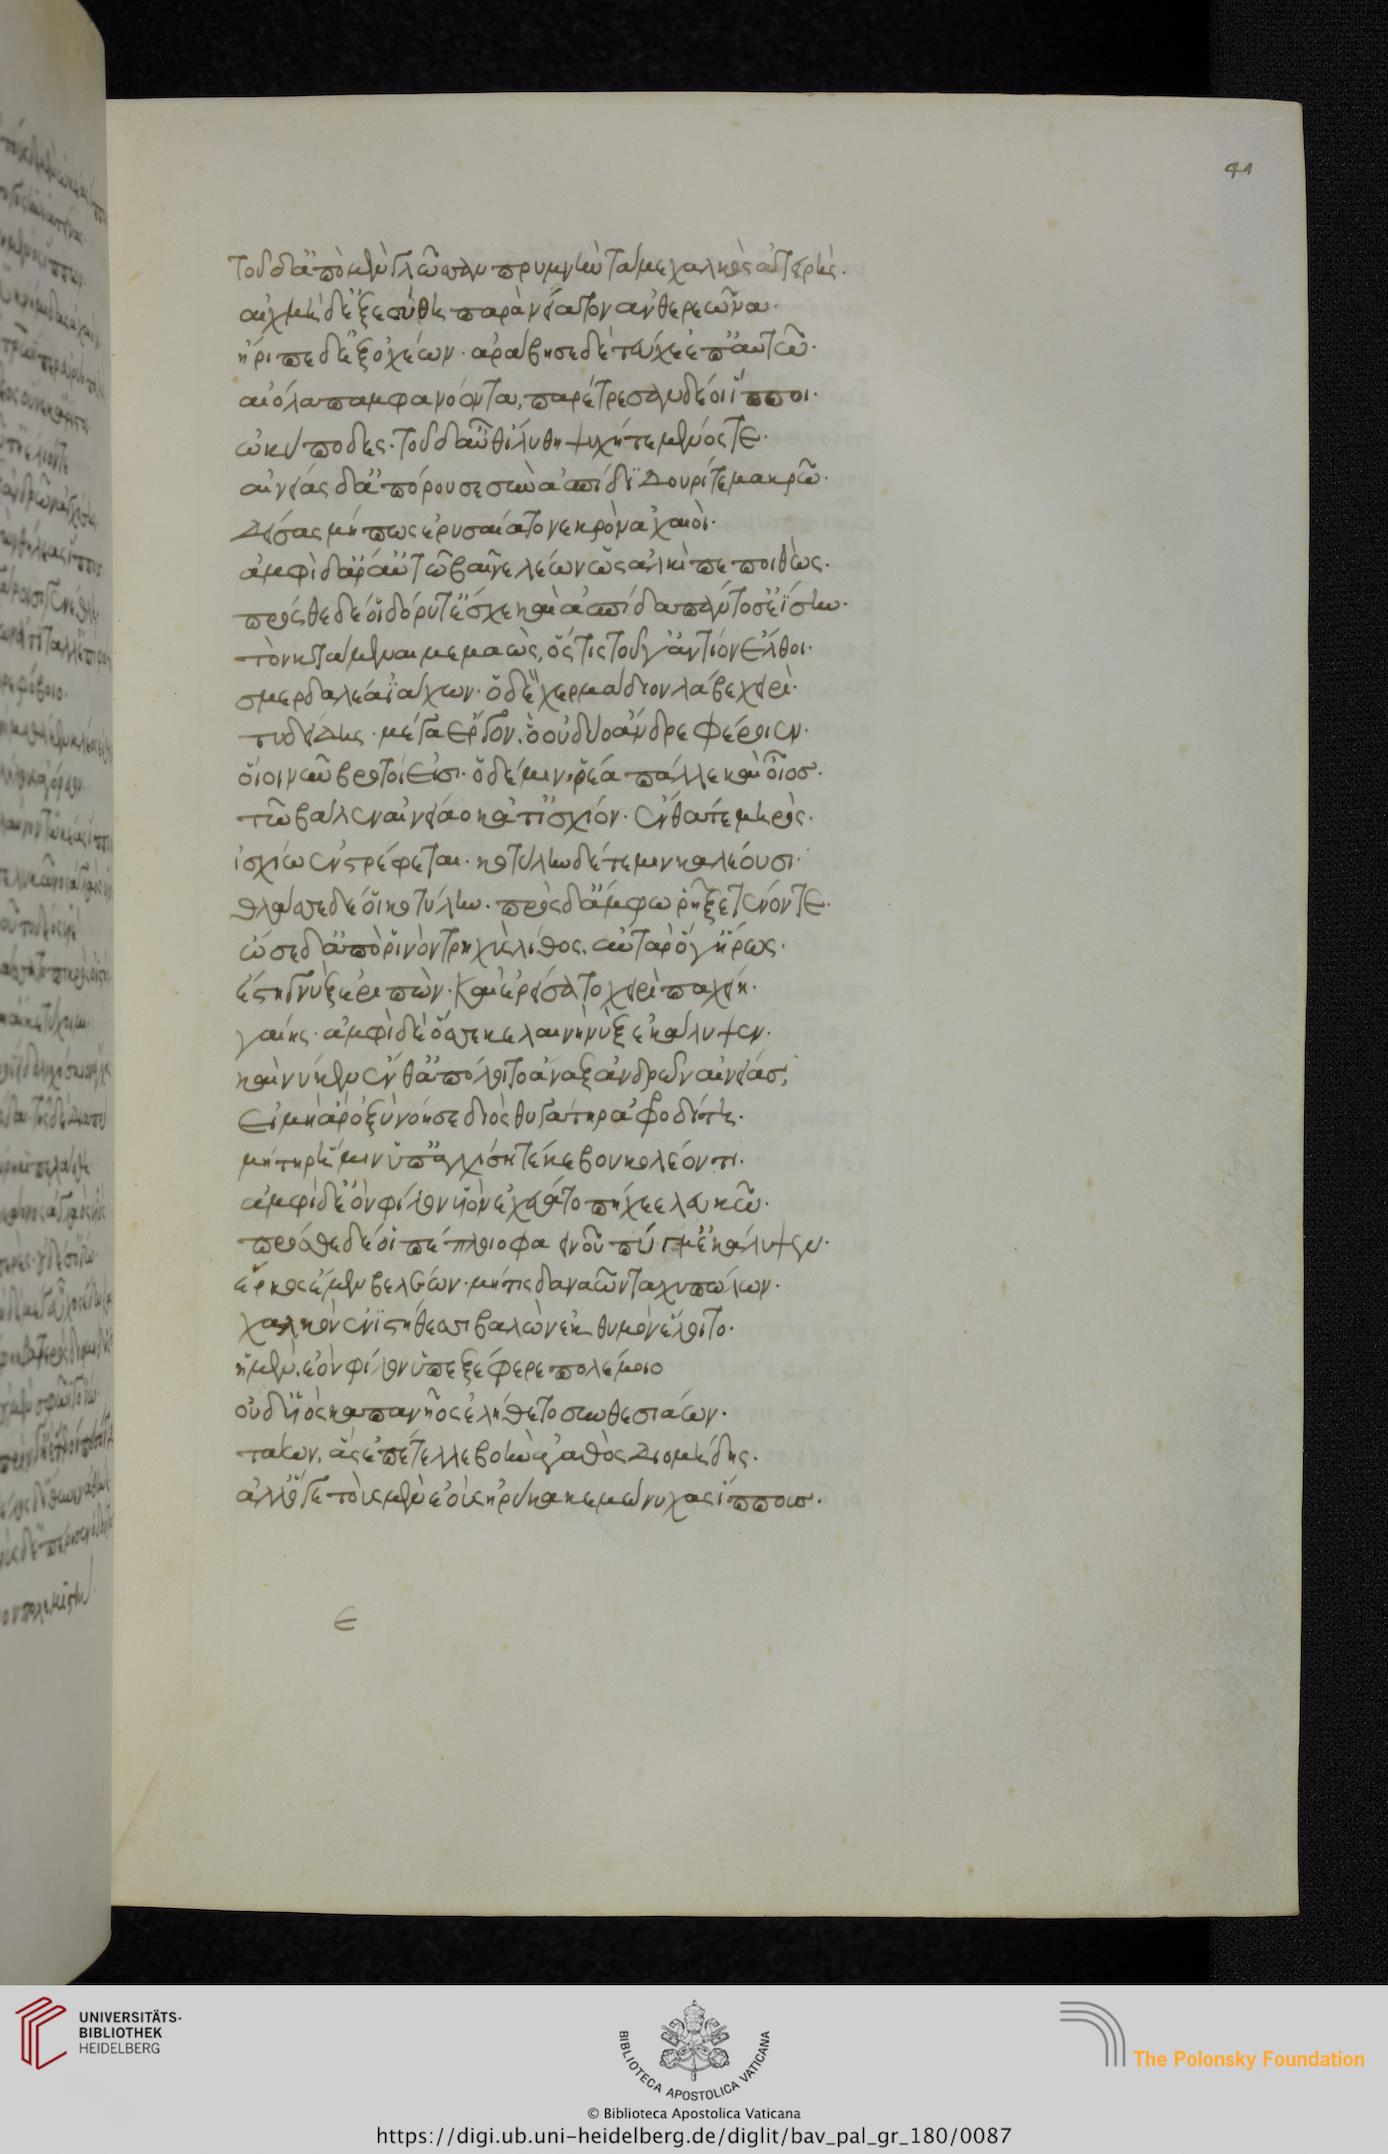 41
τοῦ δ' ἀπὸ μὲν γλῶσσαν πρυμνὴν τάμε χαλκὸς ἀτειρής.
αἰχμὴ δ' ἐξεσύθη παρὰ νείατον ἀνθερεῶνα.
ἤριπε δ' ἐξ ὀχέων. ἀράβησε δὲ τεύχε' ἐπ' αὐτῶ.
αἰόλα παμφανόωντα, παρέτρεσαν δέ οἱ ἵπποι.
ὠκύποδες. τοῦ δ' αὖθι λύθη ψυχή τε μένός τε.
αἰνείας δ' ἀπόρουσε σὺν ἀσπίδι δουρί τε μακρῶ.
δείσας μή πως ἐρυσαίατο νεκρὸν ἀχαιοὶ.
ἀμφὶ δ' ἄρ' αὐτῶ βαῖνε λέων ὣς ἀλκὶ πεποιθὼς.
πρόσθε δέ οἱ δόρυ τ' ἔσχε καὶ ἀσπίδα πάντοσ' ἐΐσην.
τὸν κτάμεναι μεμαὼς, ὅς τις τοῦ γ' ἀντίον ἔλθοι.
σμερδαλέα ἰάχων. ὁ δὲ χερμάδιον λάβε χειρὶ.
τυδείδης. μέγα ἔργον, ὃ οὐ δύο ἄνδρε φέροιεν.
οἷοι νῦν βροτοί εἰσι. ὁ δέ μιν ῥέα πάλλε καὶ οἶος.
τῶ βάλεν αἰνείαο κατ' ἰσχίον. ἔνθά τε μηρὸς.
ἰσχίω ἐνστρέφεται. κοτύλην δέ τέ μιν καλέουσι.
θλάσσε δέ οἱ κοτύλην. πρὸς δ' ἄμφω ῥῆξε τένοντε.
ὦσε δ' ἀπὸ ῥινὸν τρηχὺς λίθος. αὐτὰρ ὅ γ' ἥρως.
ἔστη γνὺξ ἐριπὼν. καὶ ἐρείσατο χειρὶ παχείη.
γαίης. ἀμφὶ δὲ ὄσσε κελαινὴ νὺξ ἐκάλυψεν.
καὶ νύ κεν ἔνθ' ἀπόλοιτο ἄναξ ἀνδρῶν αἰνείας,
εἰ μὴ ἄρ' ὀξὺ νόησε διὸς θυγάτηρ ἀφροδίτη.
μήτηρ ἥ μιν ὑπ' ἀγχίση τέκε βουκολέοντι.
ἀμφὶ δ' ἑὸν φίλον υἱὸν ἐχεύατο πήχεε λευκῶ.
πρόσθε δέ οἱ πέπλοιο φαεινοῦ πτύγμ' ἐκάλυψεν.
ἕρκος ἔμεν βελέων. μή τις δαναῶν ταχυπώλων.
χαλκὸν ἐνὶ στήθεσσι βαλὼν ἐκ θυμὸν ἕλοιτο.
ἡ μὲν ἑὸν φίλον υἱὸν ὑπεξέφερε πολέμοιο
οὐδ' υἱὸς καπανῆος ἐλήθετο συνθεσιάων.
τάων, ἃς ἐπέτελλε βοὴν ἀγαθὸς διομήδης.
ἀλλ' ὅ γε τοὺς μὲν ἑοὺς ἠρύκακε μώνυχας ἵππους.
ε
UNIVERSITÄTS-
BIBLIOTHEK
HEIDELBERG
BIBLIOTECA APOSTOLICA VATICANA
The Polonsky Foundation
© Biblioteca Apostolica Vaticana
https://digi.ub.uni-heidelberg.de/diglit/bav_pal_gr_180/0087